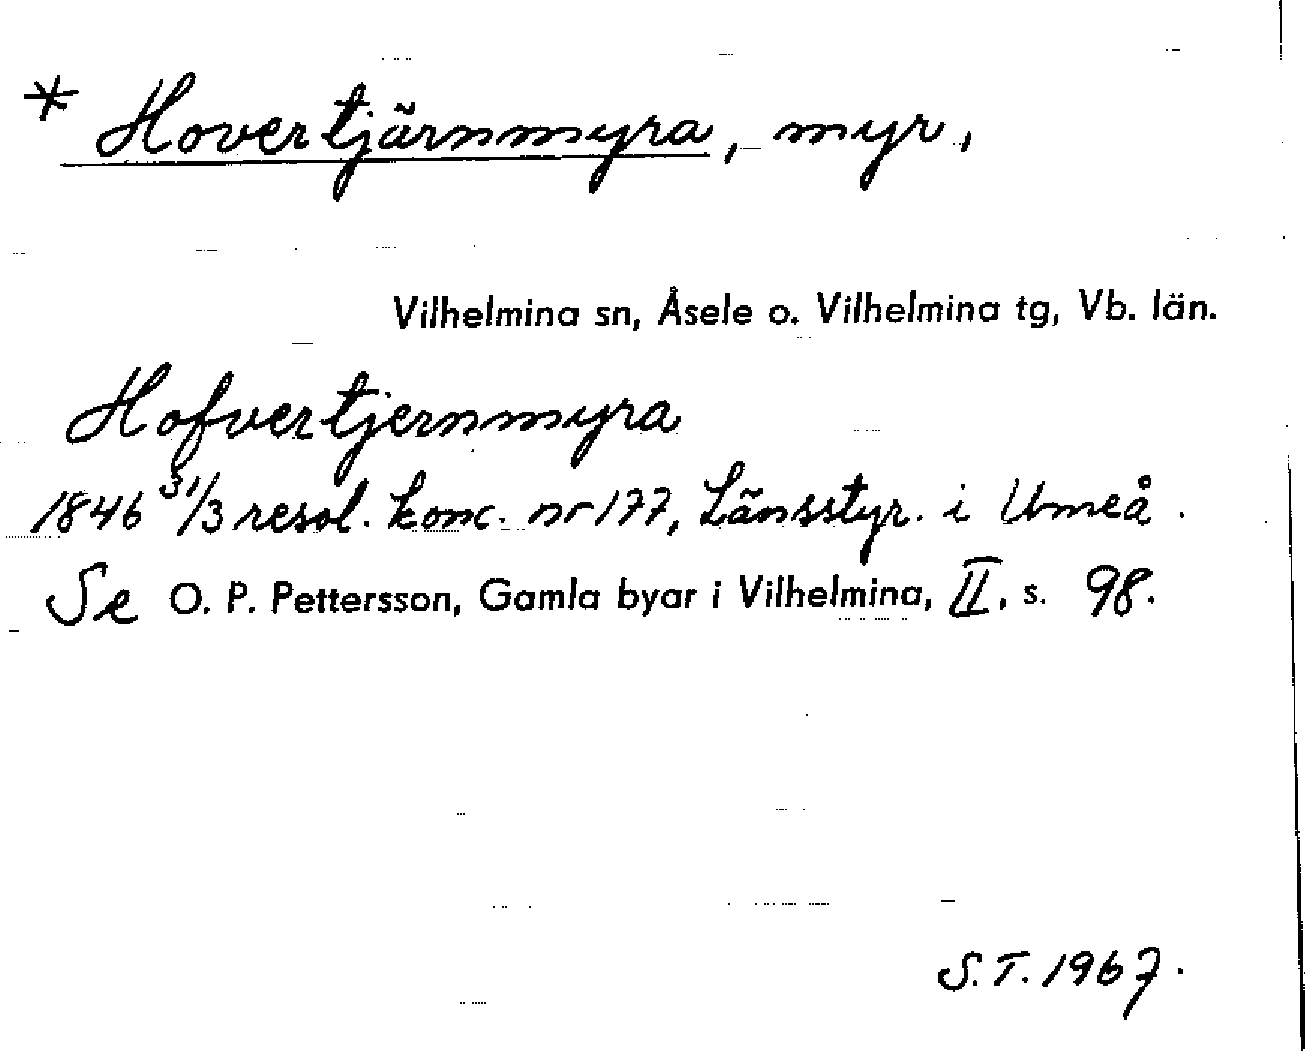 * Hovertjärnmyra, myr,
Vilhelmina sn, Åsele o. Vilhelmina tg, Vb. län.
Hofvertjernmyra
1846 31/3 resol. konc. nr 177, Länsstyr. i Umeå.
Se O. P. Pettersson, Gamla byar i Vilhelmina, II, s. 98.
S.T. 1967.